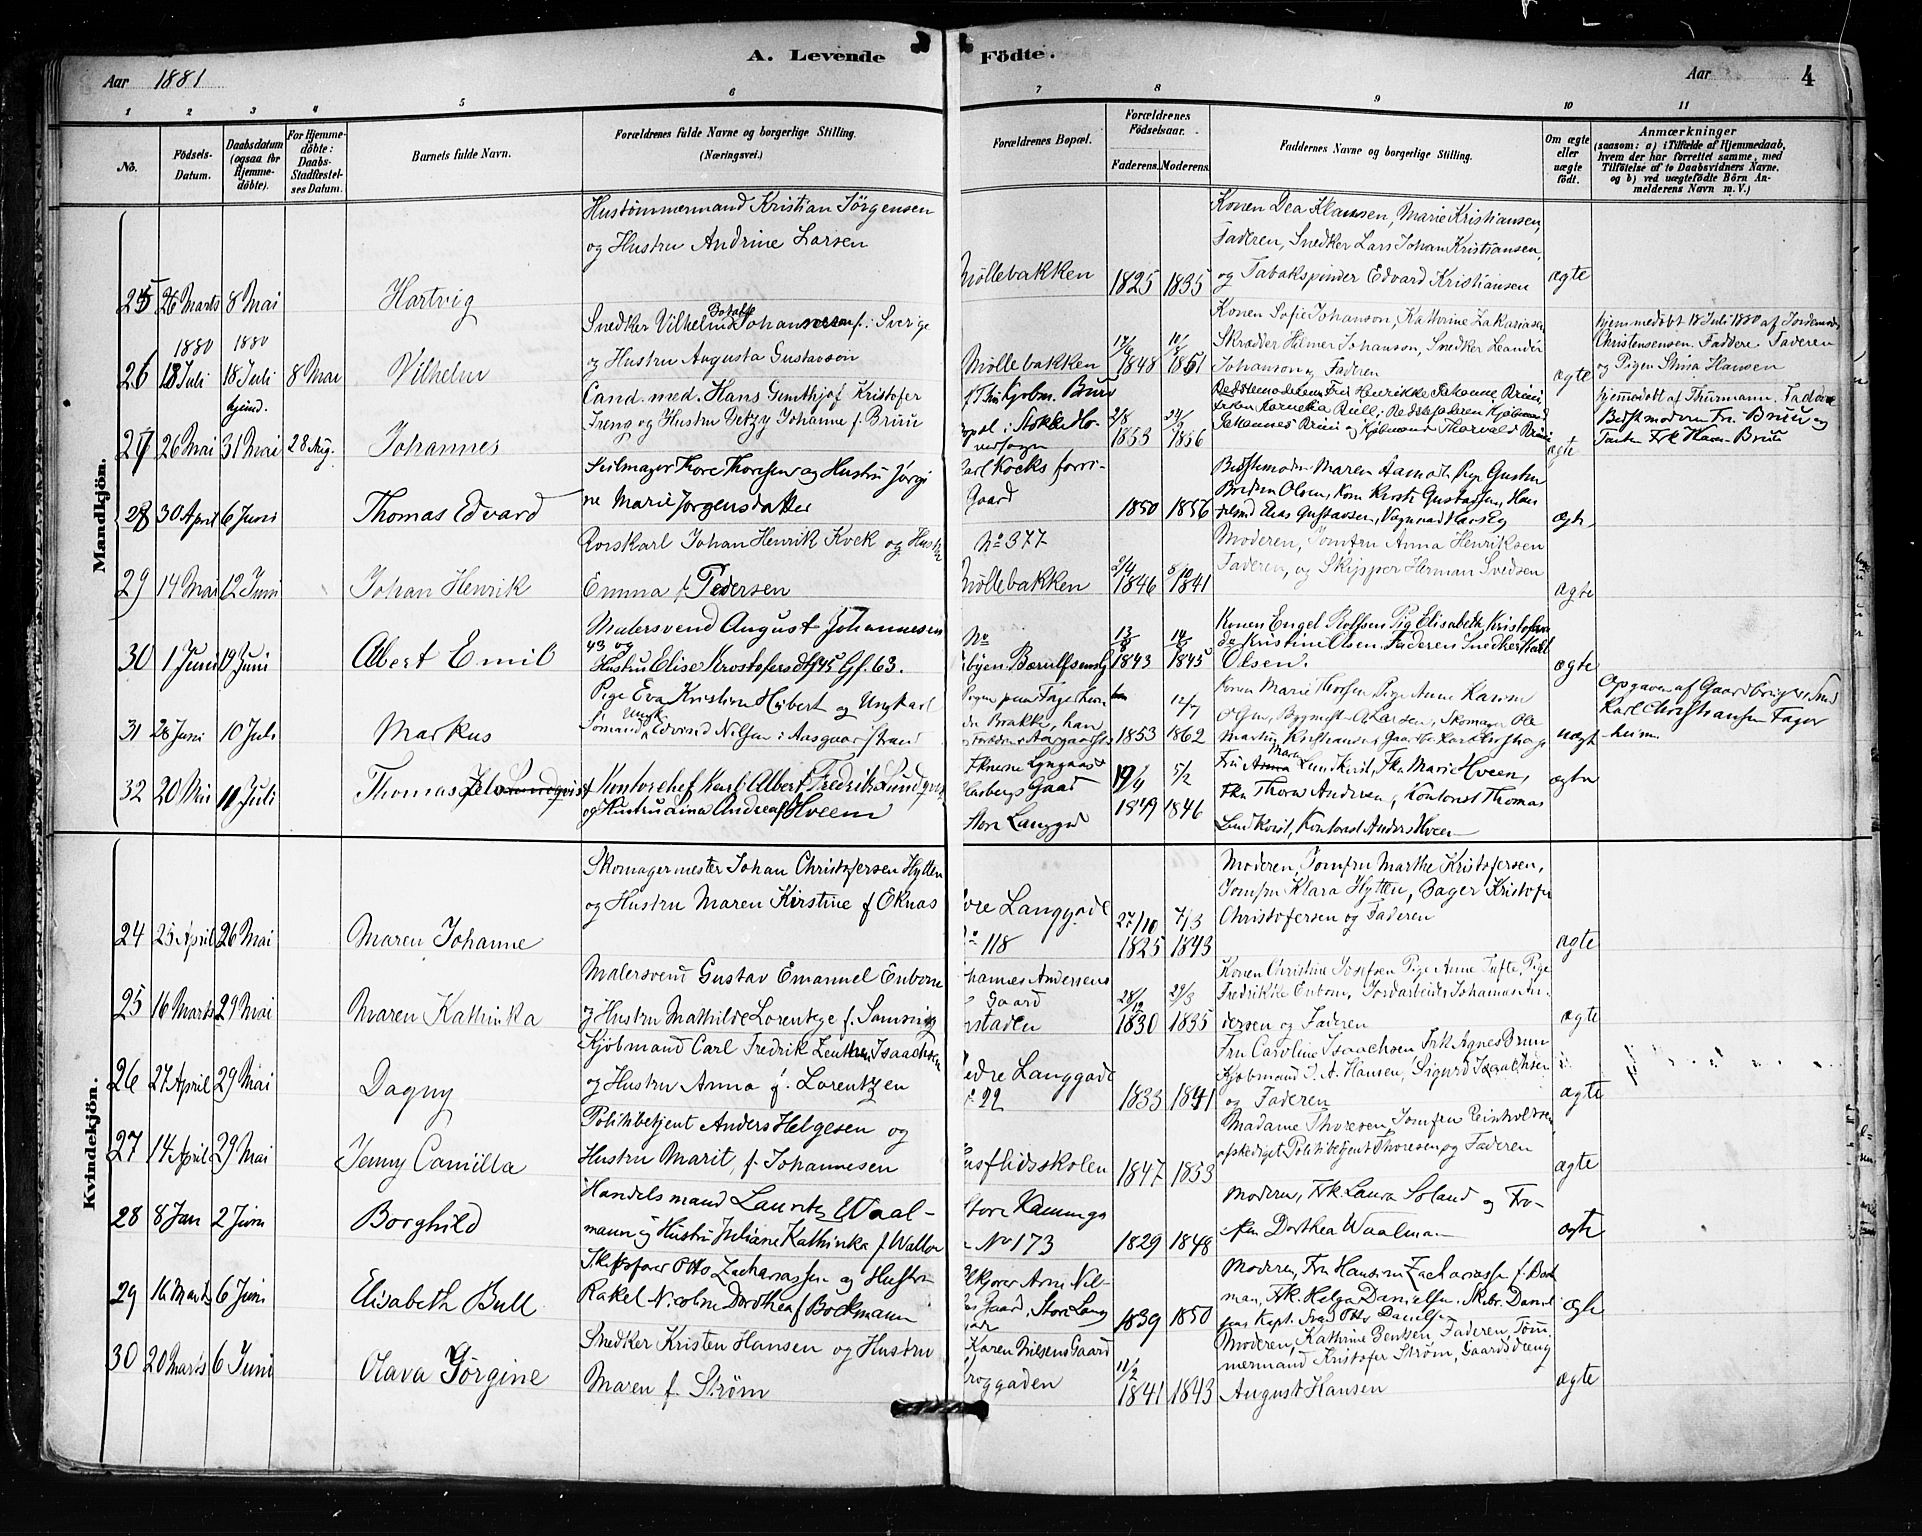 A. Levende Födte.
Aar 1881
Aar 4
1 2 3 4 5 6 7 8 9 10 11
No.
Födsels-Datum.
Daabsdatum (ogsaa for Hjemmedöbte).
For Hjemmedöbte: Daabs-Stadfæstelses Datum.
Barnets fulde Navn.
Forældrenes fulde Navne og borgerlige Stilling. (Næringsvei.)
Forældrenes Bopæl.
Forældrenes Födselsaar.
Faderens. Moderens.
Faddernes Navne og borgerlige Stilling.
Om ægte eller uægte födt.
Anmærkninger (saasom: a) i Tilfælde af Hjemmedaab, hvem der har forrettet samme, med Tilföielse af to Daabsvidners Navne, og b) ved uægtefödte Börn Anmelderens Navn m. V.)
Mandkjön.
25 26 Marts 8 Mai Hartvig
Hustømmermand Kristian Jørgensen
og Hustru Andrine Larsen
Møllebakken 1825 1835
Konen Dea Klausen, Marie Kristiansen,
Faderen, Snedker Lars Johan Kristiansen,
og Tabakspinder Edvard Kristiansen
ægte
1880 1880
26 18 Juli 18 Juli 8 Mai Vilhelm
hjemd.
Snedker Vilhelm Johansson f. i Sverige
og Hustru Augusta Gustavson
Møllebakken 1848 1851
Konen Sofie Johanson, Kathrine Zakariasen
Skrædder Hilmer Johanson, Snedker Leander
Johanson og Faderen
ægte
hjemmedøbt 18 Juli 1880 af Jordemoder
Christensensen. Faddere Faderen
og Pigen Stina Hansen
27 26 Mai 31 Mai 28 Aug. Johannes
Cand. med. Hans Gunthjof Kristofer
Treng og Hustru Ditzy Johanne f. Bruu
Bopæl i Stokke Ho-
vedsogn
2/8 1853 24/2 1856
Johannes Bruu og Kjøbmand Thorvald Bruu
ægte
hjemmedøbt af Thurmann. Faddere
Bedstmodern Fru Bruu og
Tante Frk Bruu
28 30 April 6 Juni Thomas Edvard
Seilmager Thore Thoresen og Hustru Jørgi
ne Marie Jørgensdatter
Carl Kocks forri-
Gaard 1850 1856
Bedstemoder Maren Aamodt, Pige Gustava
Bredine Olsen, Kone Kirsti Gustavsen, Han
delsmd Elias Gustavsen, Vognmd Hans Eg
ægte
29 14 Mai 12 Juni Johan Henrik
Rorskarl Johan Henrik Kock og Hustru
Emma f. Pedersen
No 377
Møllebakken 1846 1841
Moderen, Jomfru Anna Henriksen
Faderen, og Skipper Herman Svedsen
ægte
30 1 Juni 19 Juni Albert Emil
Malersvend August Johannesen
43 og
Hustru Elise Kristofersdtr f 45 Gf. 63.
No
13/8 1843 14/8 1845
Konen Engel Rolfsen Pig Elisabeth Kristofersen
do Kristine Olsen, Faderen Snedker
Olsen.
ægte
31 28 Juni 10 Juli Markus
Pige Eva Kristine Hubert og Ungkarl
Sømand Edvind Nilsen i Aasgaarstrand
1853 12/7 1862
Konen Marie Thorsen Pige Anne Karine
Olsen, Bygmest A Larsen, Skomager Ole
uægt
Opgaven af Gaardbruger Smd
Karl Christiansen Fager
heim.
32 20 Mai 11 Juli Thomas
Kontorchef Karl Albert Fredrik Lundqvist
og Hustru Anna Andrea f Hveem
Store Langgd 19/4 1849 5/2 1846
Fru Maren Lundkvist, Frkn Marie Hveen,
Frkn Thora Andersen, Kontorist Thomas
Lundkvist, Kontorist Anders Hveen
ægte
Kvindekjön.
24 25 April 26 Mai Maren Johanne
Skomagermester Johan Christofersen Hytten
og Hustru Maren Kirstine f Eknas
Øvre Langgade
No 118 27/10 1825 7/3 1843
Moderen, Jomfru Marthe Kristofersen,
Jomfru Klara Hytten, Bager Kristofer
Christofersen og Faderen
ægte
25 16 Marts 29 Mai Maren Kathinka
Malersvend Gustav Emanuel Enbom
og Hustru Mathilde Lorentze f. Samsing
Johannes Andersens
Gaard
28/12 1830 29/3 1835
Konen Christine Josefsen Pige Anne Tufte, Pige
Fredrikke Enbom, Jordarbeider Johannes An-
dersen og Faderen
ægte
26 27 April 29 Mai Dagny
Kjøbmand Carl Fredrik Zeuthen Isaachsen
og Hustru Anna f. Lorentzen
Nedre Langgade
22 1833 1841
Fru Caroline Isaachsen Frk Agnes Bruun
Kjøbmand J. A. Hansen, Sigurd Isaachsen
og Faderen
ægte
27 14 April 29 Mai Jenny Camilla
Politibetjent Anders Helgesen og
Hustru Marit, f. Johannesen
Husflidsskolen 1847 1853
Madame Thoresen, Jomfru Reinholdtsen
afskediget Politibetjent Thoresen og Faderen
ægte
28 8 Jan 2 Juni Borghild
Handelsmand Lauritz Waal-
mann og Hustru Juliane Kathinka f Walloe
Store
No 173 1829 1848
Moderen, Frk. Laura Soland og Frø-
ken Dorthea Waalman
ægte
29 16 Marts 6 Juni Elisabeth Bull
Skibsfører Otto Zachariassen og Hustru
Rakel Nicoline Dorthea f Bockmann
Gaard, Store Lang
gade 1839 1850
Moderen, Fru Hansine Zachariassen f. Bock
man, Frk. Helga Danielsen, Skibr. Daniel
sen Kapt. Otto Danielsen
ægte
30 20 Marts 6 Juni Olava Jørgine
Snedker Kristen Hansen og Hustru
Maren f. Strøm
Karen Nilsens Gaard
Froggaden 11/2 1841 1843
Moderen, Kathrine Bentsen, Faderen, Tøm
mermand Kristofer Strøm, Gaardsdreng
August Hansen
ægte